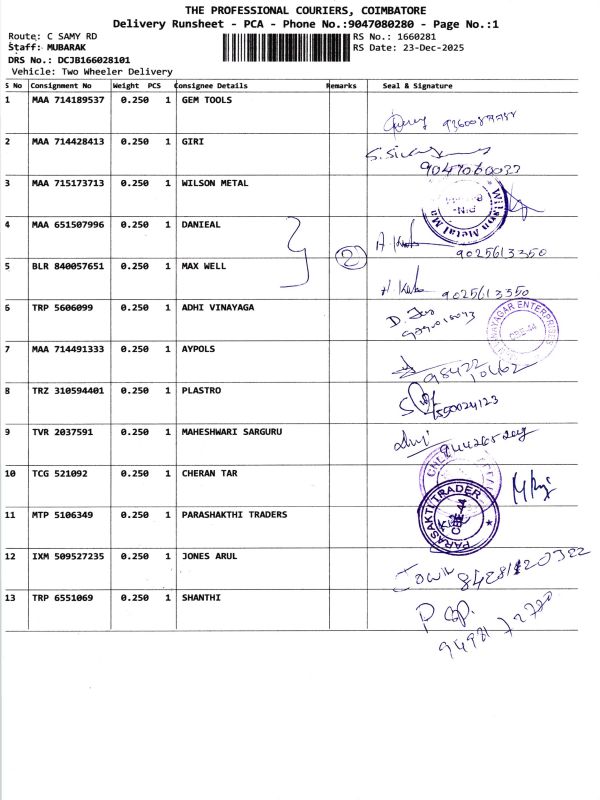 THE PROFESSIONAL COURIERS, COIMBATORE
Delivery Runsheet - PCA - Phone No.:9047080280 - Page No.:1
Route: C SAMY RD RS No.: 1660281
Staff: MUBARAK RS Date: 23-Dec-2025
DRS No.: DCJB166028101
Vehicle: Two Wheeler Delivery
S No Consignment No Weight PCS Consignee Details Remarks Seal & Signature
1 MAA 714189537 0.250 1 GEM TOOLS
2 MAA 714428413 0.250 1 GIRI
9047060037
3 MAA 715173713 0.250 1 WILSON METAL
Wilson Metal Ma
4 MAA 651507996 0.250 1 DANIEAL
2
9025613350
5 BLR 840057651 0.250 1 MAX WELL
9025613350
6 TRP 5606099 0.250 1 ADHI VINAYAGA
NAYAGAR ENTERPRISES
CBE-44
7 MAA 714491333 0.250 1 AYPOLS
98422 10462
8 TRZ 310594401 0.250 1 PLASTRO
9 TVR 2037591 0.250 1 MAHESHWARI SARGURU
10 TCG 521092 0.250 1 CHERAN TAR
11 MTP 5106349 0.250 1 PARASHAKTHI TRADERS
PARASAKTI TRADER
CBE-44
12 IXM 509527235 0.250 1 JONES ARUL
13 TRP 6551069 0.250 1 SHANTHI